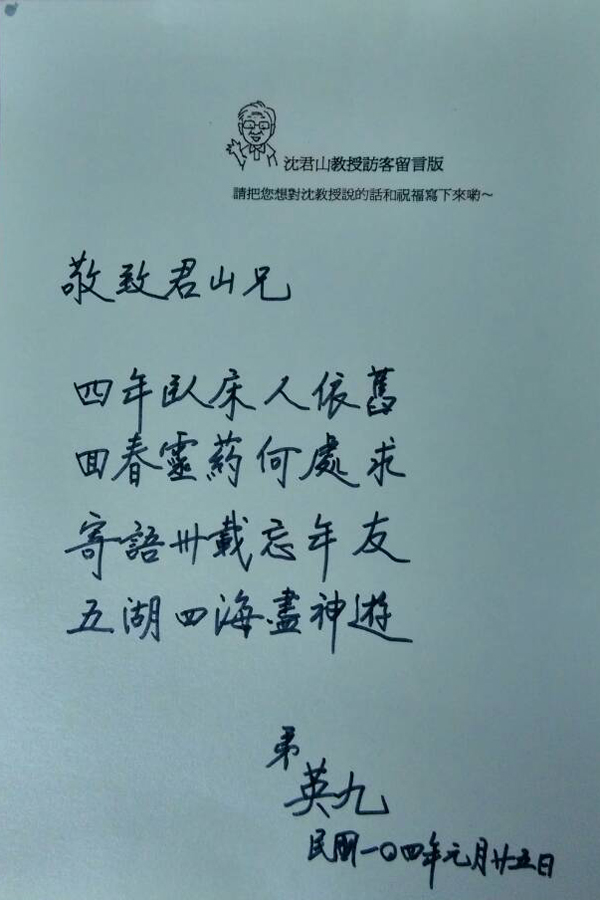 沈君山教授訪客留言版
請把您想對沈教授說的話和祝福寫下來喲～
敬致君山兄
四年臥床人依舊
回春靈葯何處求
寄語卅載忘年友
五湖四海盡神遊
弟
英九
民國一〇四年元月廿五日